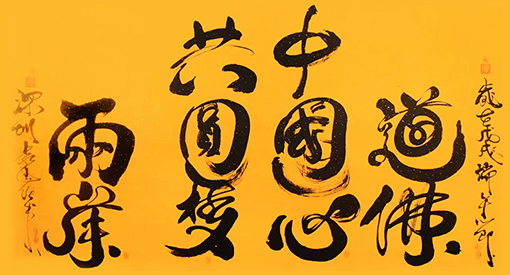 歲在戊戌端午節
道佛
中國心
共圓梦
兩岸
深圳